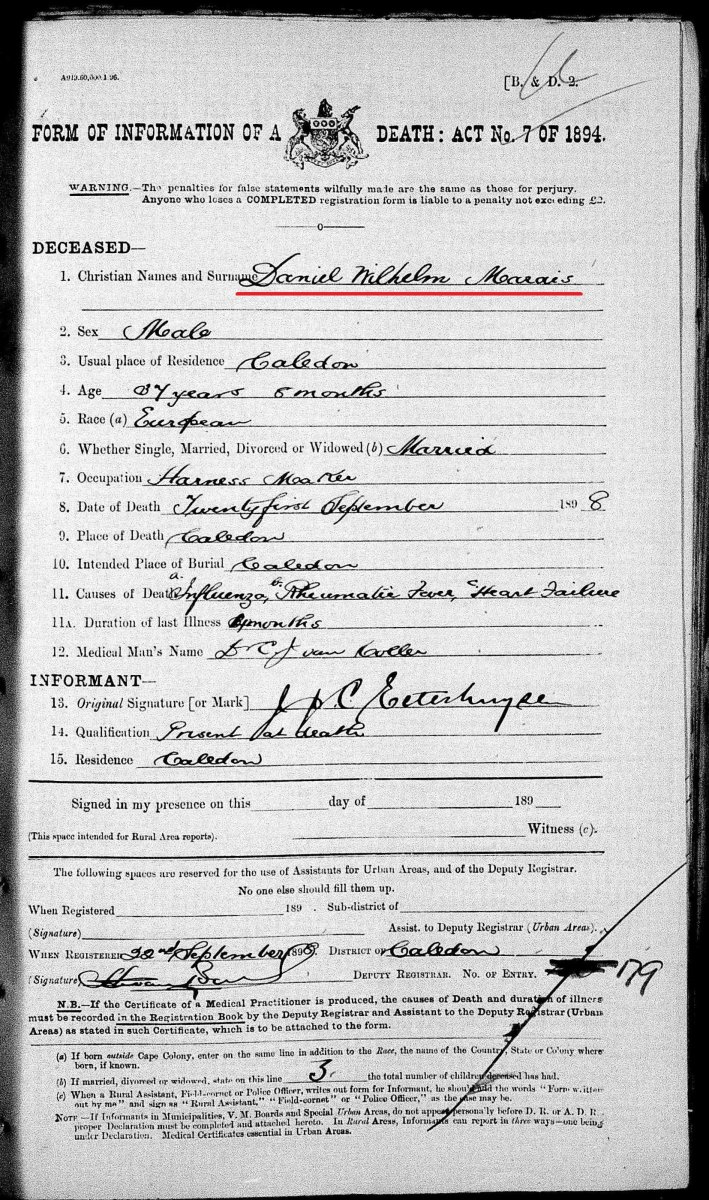 A919.60,500.1.96.
[B. & D. 2.
FORM OF INFORMATION OF A DEATH: ACT No. 7 OF 1894.
WARNING.—The penalties for false statements wilfully made are the same as those for perjury.
Anyone who loses a COMPLETED registration form is liable to a penalty not exceeding £2.
DECEASED—
1. Christian Names and Surname Daniel Wilhelm Marais
2. Sex Male
3. Usual place of Residence Caledon
4. Age 37 years 5 months
5. Race (a) European
6. Whether Single, Married, Divorced or Widowed (b) Married
7. Occupation Harness Maker
8. Date of Death Twenty first September 1898
9. Place of Death Caledon
10. Intended Place of Burial Caledon
11. Causes of Death a. Influenza, b. Rheumatic Fever, c. Heart Failure
11A. Duration of last Illness months
12. Medical Man's Name Dr C J van
INFORMANT—
13. Original Signature [or Mark] J P C Esterhuyse
14. Qualification Present at death
15. Residence Caledon
Signed in my presence on this day of 189
(This space intended for Rural Area reports). Witness (c).
The following spaces are reserved for the use of Assistants for Urban Areas, and of the Deputy Registrar.
No one else should fill them up.
When Registered 189 . Sub-district of
(Signature) Assist. to Deputy Registrar (Urban Areas).
WHEN REGISTERED 22nd September 1898. DISTRICT OF Caledon
(Signature) DEPUTY REGISTRAR. No. OF ENTRY. 179
N.B.—If the Certificate of a Medical Practitioner is produced, the causes of Death and duration of illness
must be recorded in the Registration Book by the Deputy Registrar and Assistant to the Deputy Registrar (Urban
Areas) as stated in such Certificate, which is to be attached to the form.
(a) If born outside Cape Colony, enter on the same line in addition to the Race, the name of the Country, State or Colony where
born, if known.
(b) If married, divorced or widowed, state on this line 3 the total number of children deceased has had.
(c) When a Rural Assistant, Field-cornet or Police Officer, writes out form for Informant, he should add the words "Form written
out by me" and sign as "Rural Assistant," "Field-cornet" or "Police Officer," as the case may be.
NOTE—If Informants in Municipalities, V. M. Boards and Special Urban Areas, do not appear personally before D. R. or A. D. R.
proper Declaration must be completed and attached hereto. In Rural Areas, Informants can report in three ways—one being
under Declaration. Medical Certificates essential in Urban Areas.